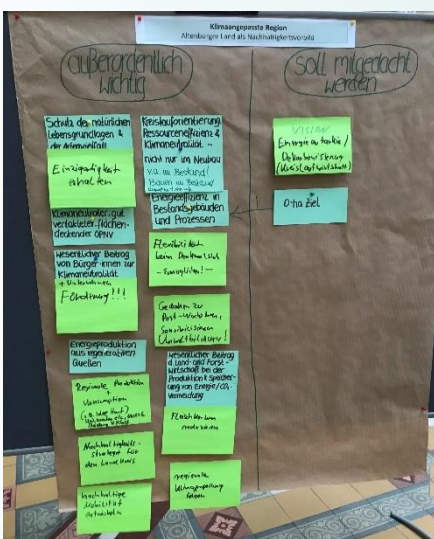 Klimaangepasste Region
Altenburger Land als Nachhaltigkeitsvorbild
außerordentlich
wichtig
soll mitgedacht
werden
Schutz der natürlichen
Lebensgrundlagen &
der Artenvielfalt
Einzigartigkeit
erhalten
Klimaneutraler, gut
vertakteter, flächen-
deckender ÖPNV
wesentlicher Beitrag
von Bürger:innen zur
Klimaneutralität
+ Unternehmen
Förderung!!!
Energieproduktion
aus regenerativen
Quellen
Regionale Produktion
+
Vermarktung
Nachhaltigkeits-
strategie für
den Landkreis
nachhaltige
Mobilität
entwickeln
Kreislauforientierung
Ressourceneffizienz &
Klimaneutralität -
nicht nur im Neubau
v.a. im Bestand/
Bauen im Bestand
Energieeffizienz in
Bestandsgebäuden
und Prozessen
Flexibilität
beim Denkmalschutz
- Ermöglichen! -
Gedanken zu
Post-Wachstum,
Sensibilisieren
Umweltbildung!
wesentlicher Beitrag
d. Land- und Forst-
wirtschaft bei der
Produktion & Speicher-
ung von Energie/CO₂-
vermeidung
Fleischkonsum
reduzieren
regionale
Vision
Energieautarkie/
Dekarbonisierung
(Kreislaufwirtschaft)
0-ha Ziel